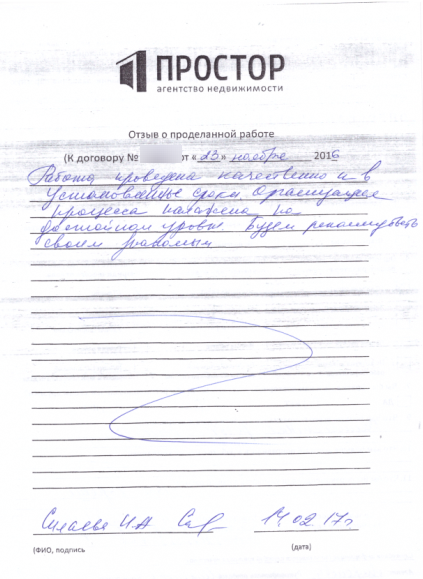 ПРОСТОР
агентство недвижимости
Отзыв о проделанной работе
(К договору № от « 23 » ноября 2016
Работа проведена качественно и в
установленные сроки. Организация
процесса налажена на
достойном уровне. Будем рекомендовать
своим знакомым
14.02.17г
(ФИО, подпись
(дата)